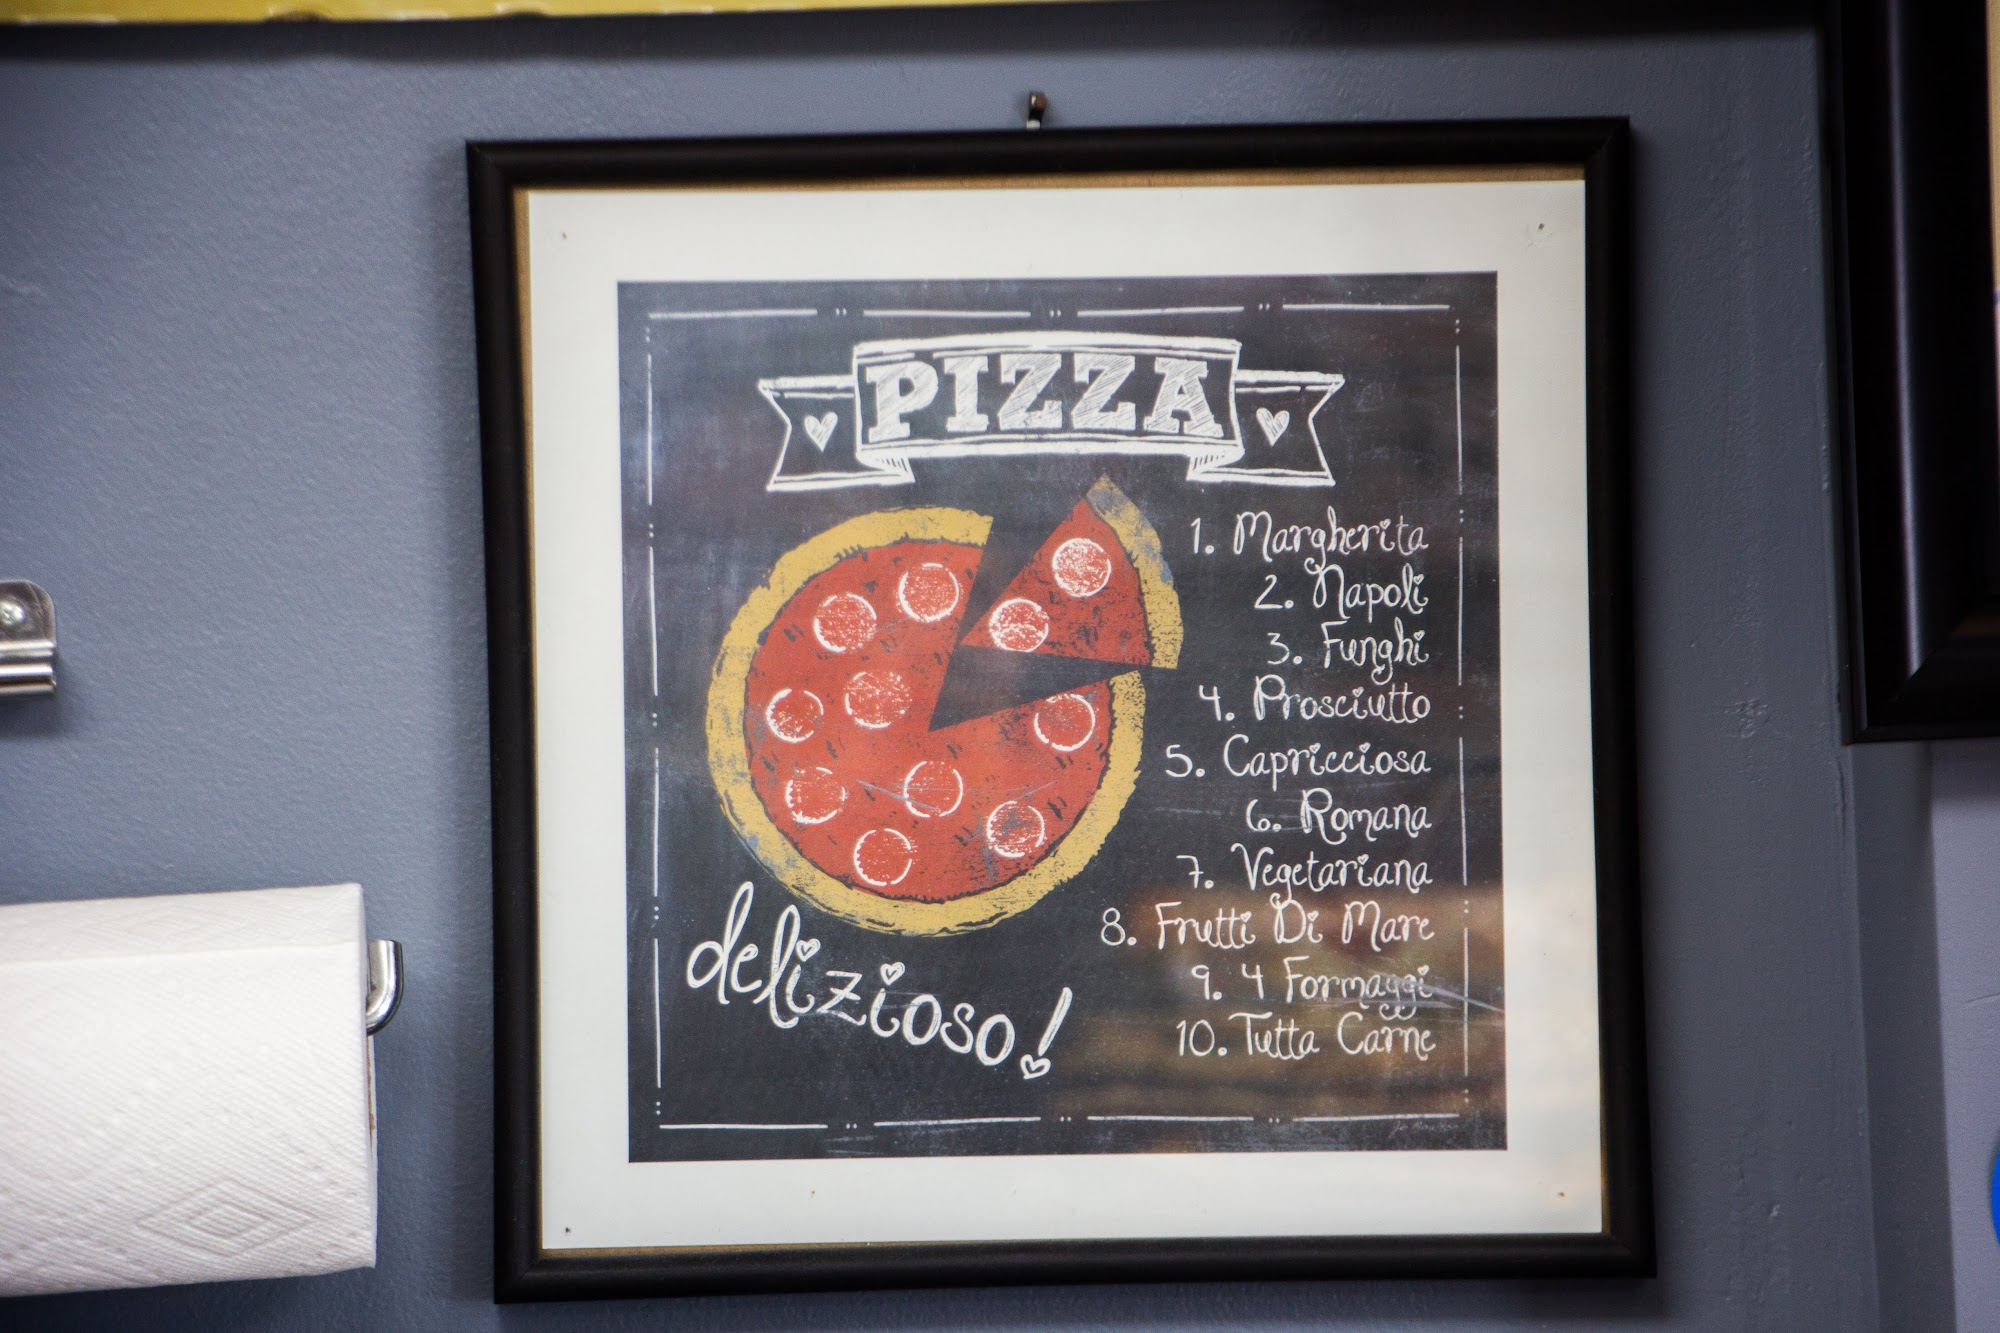 PIZZA
1. Margherita
2. Napoli
3. Funghi
4. Prosciutto
5. Capricciosa
6. Romana
7. Vegetariana
8. Frutti Di Mare
9. 4 Formaggi
10. Tutta Carne
delizioso!